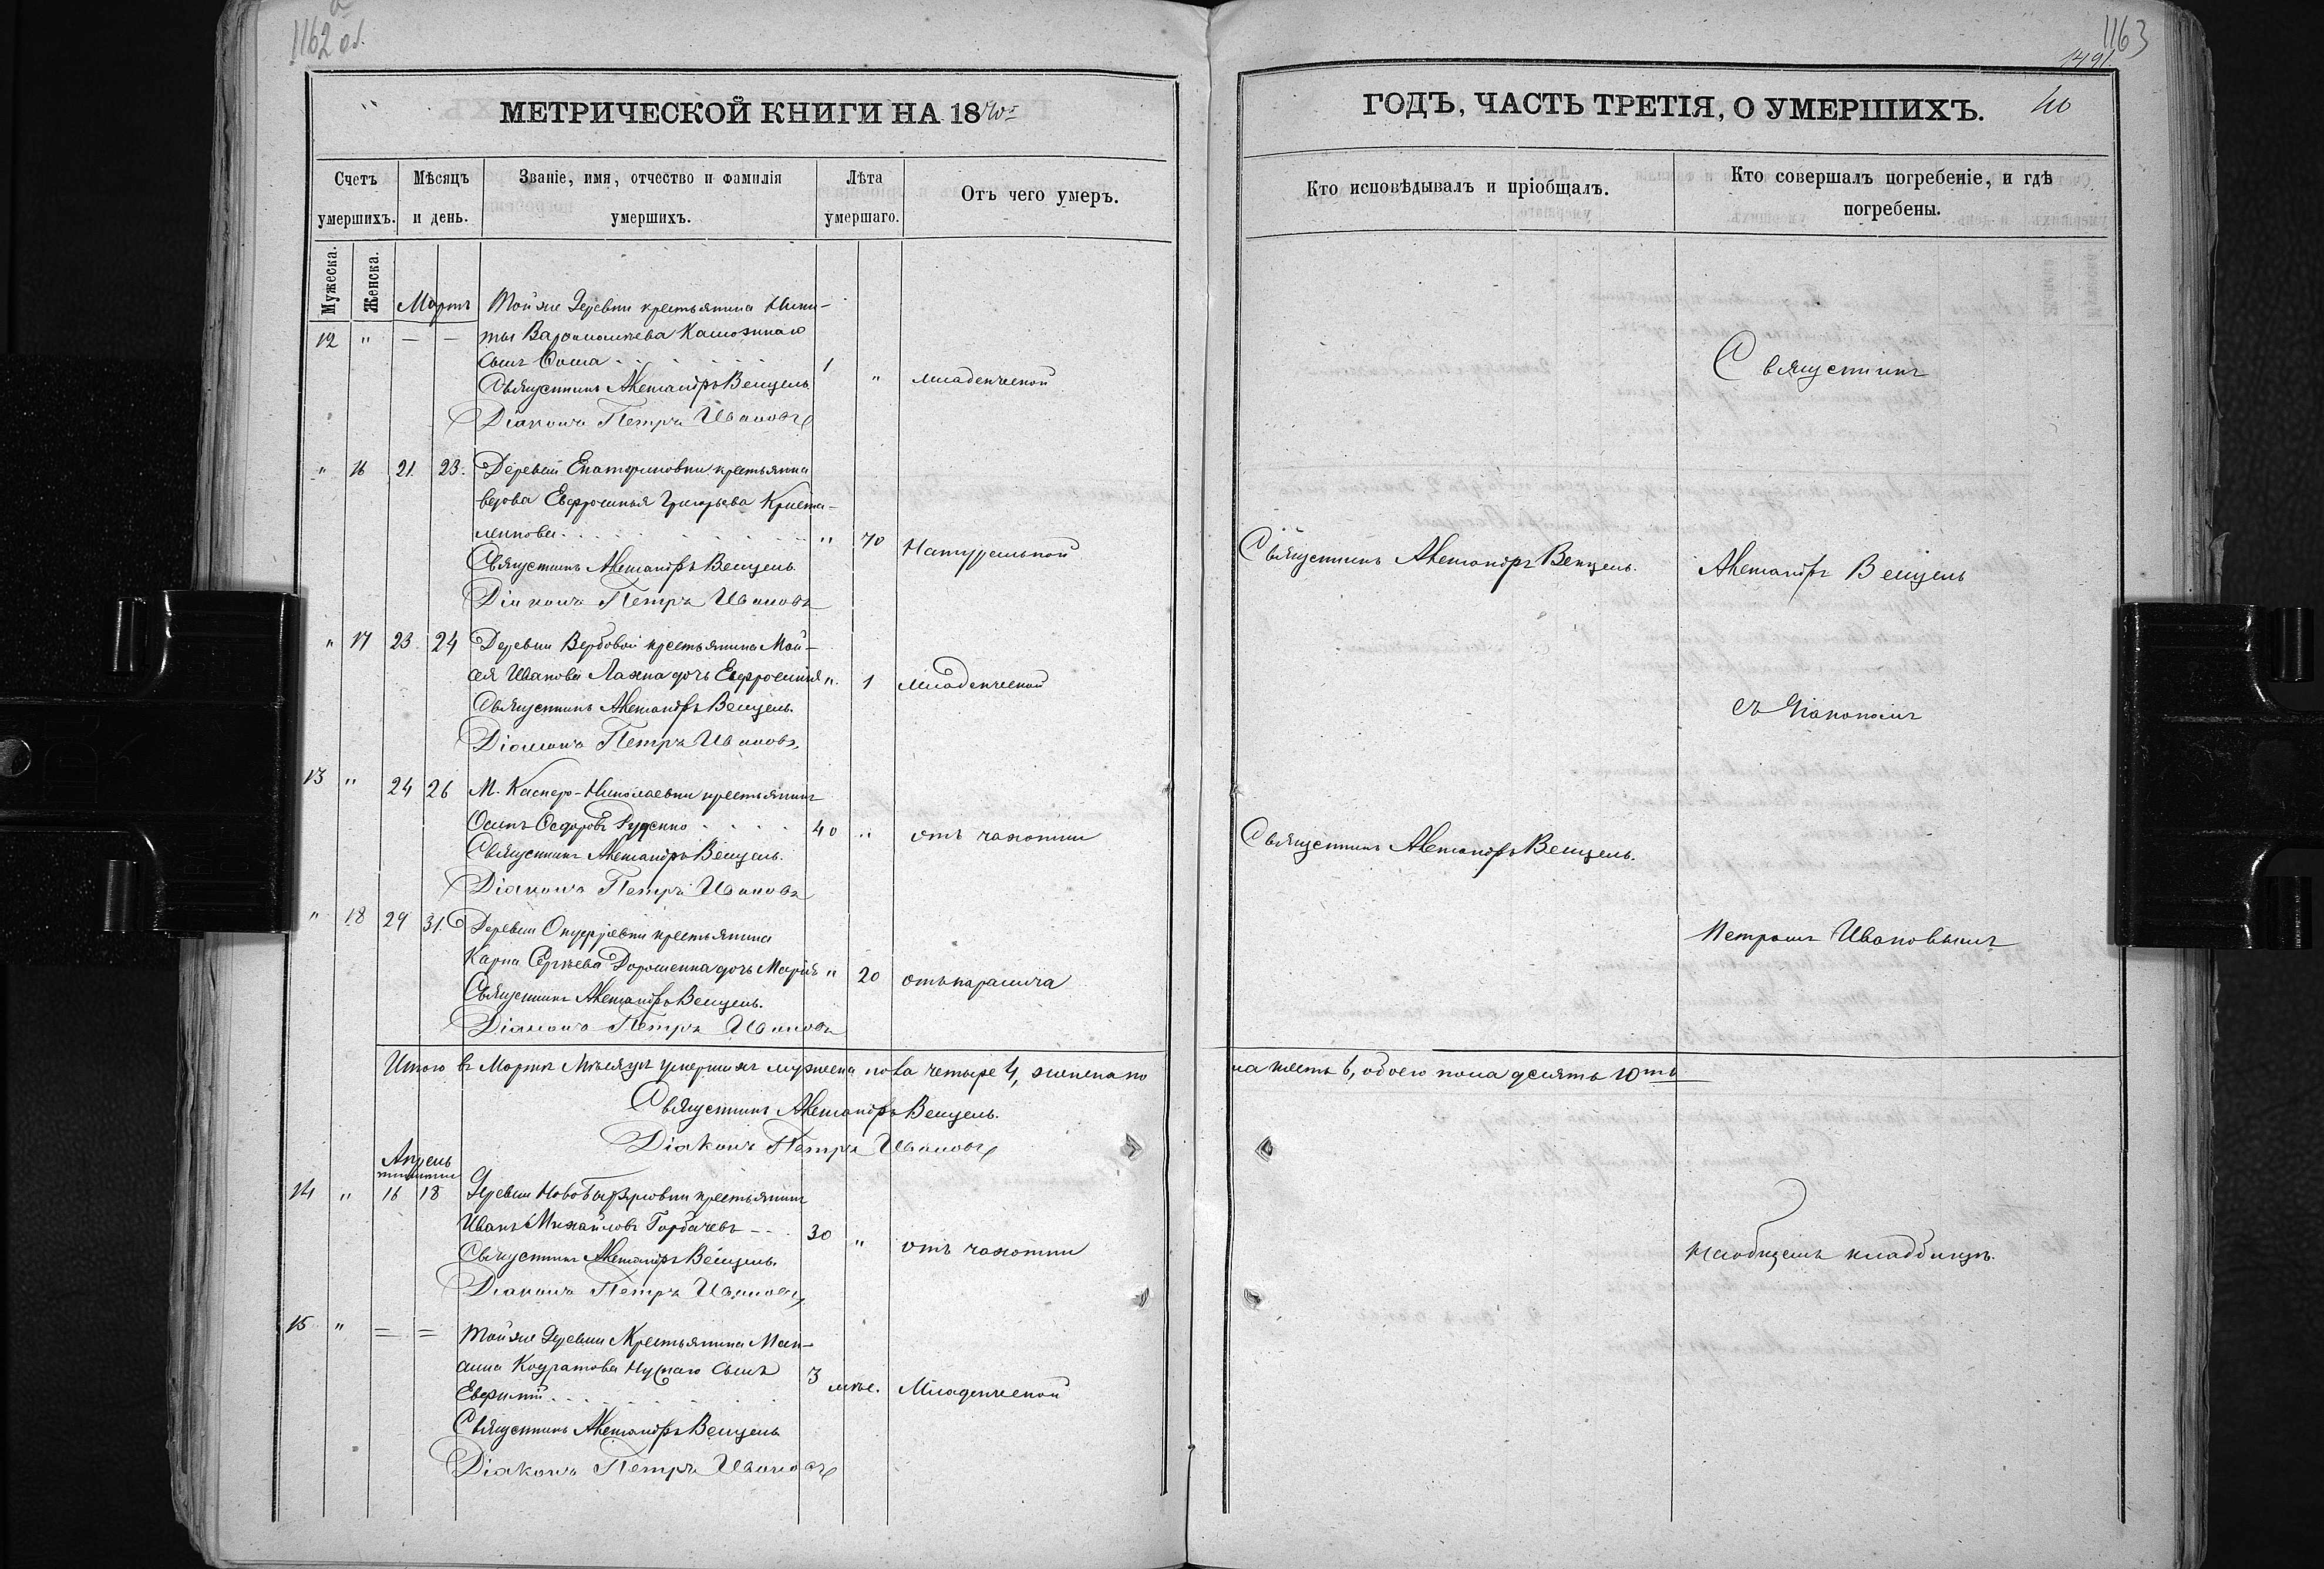 1162 об.
МЕТРИЧЕСКОЙ КНИГИ НА 1870й
Счетъ умершихъ.
Мѣсяцъ и день.
Званіе, имя, отчество и фамилія умершихъ.
Лѣта умершаго.
Отъ чего умеръ.
Мужеска.
Женска.
Мартъ
12 " — —
Той же Деревни крестьянина Ники-
ты
сынъ Ѳома 1 " младенческой
Священникъ Александръ Венцель
Діаконъ Петръ Ивановъ
" 16 21. 23. Деревни Екатериновки крестьянка
вдова Евфросинья Григорьева
" 70 Натуральной
Священникъ Александръ Венцель.
Діаконъ Петръ Ивановъ
" 17 23. 24 Деревни Вербовой крестьянина Мой-
сея Иванова дочь Евфросинія ". 1 младенческой
Священникъ Александръ Венцель.
Діаконъ Петръ Ивановъ
13 " 24 26 М. Касперо-Николаевки крестьянинъ
Осипъ Ѳедоровъ Руденко 40 " отъ чахотки
Священникъ Александръ Венцель.
Діаконъ Петръ Ивановъ
" 18 29 31. Деревни крестьянина
Карпа Сергѣева Дорошенка дочь Марія " 20 отъ паралича
Священникъ Александръ Венцель.
Діаконъ Петръ Ивановъ
Итого въ Мартѣ Мѣсяцѣ умершихъ мужеска пола четыре 4, женска по
Священникъ Александръ Венцель.
Діаконъ Петръ Ивановъ
Апрель
14 " 16 18 Деревни крестьянинъ
Иванъ Михайловъ Горбачевъ 30 " отъ чахотки
Священникъ Александръ Венцель.
Діаконъ Петръ Ивановъ
15 " = = Той же Деревни Крестьянина
Кодратова сынъ
Евфимій 3 мѣс. Младенческой
Священникъ Александръ Венцель
Діаконъ Петръ Ивановъ
1163
1491.
ГОДЪ, ЧАСТЬ ТРЕТІЯ, О УМЕРШИХЪ. 40
Кто исповѣдывалъ и пріобщалъ.
Кто совершалъ погребеніе, и гдѣ погребены.
Священникъ
Священникъ Александръ Венцель.
Александръ Венцель
съ Діакономъ
Священникъ Александръ Венцель.
Петромъ Ивановымъ
ла шесть 6, обоего пола десять 10ть
На общемъ кладбищѣ.